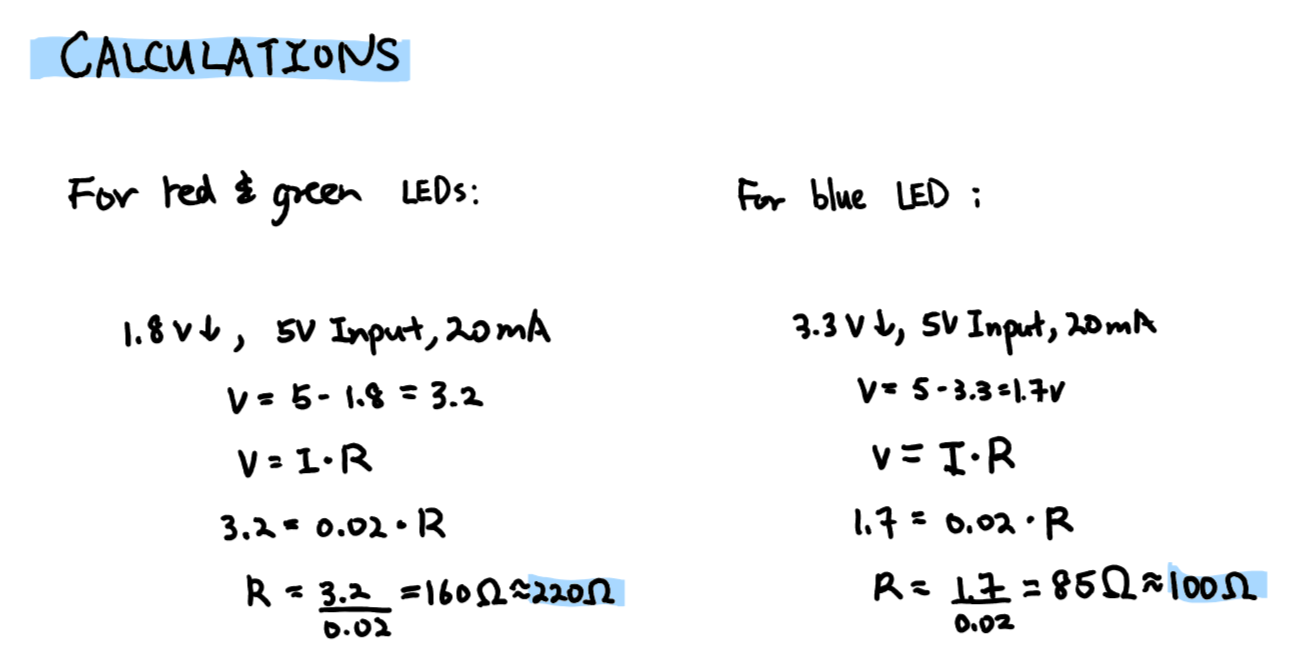 CALCULATIONS
For red & green LEDs:
1.8 V ↓, 5V Input, 20mA
V = 5 - 1.8 = 3.2
V = I · R
3.2 = 0.02 · R
R = 3.2/0.02 = 160Ω ≈ 220Ω
For blue LED ;
3.3 V ↓, 5V Input, 20mA
V = 5 - 3.3 = 1.7V
V = I · R
1.7 = 0.02 · R
R = 1.7/0.02 = 85Ω ≈ 100Ω